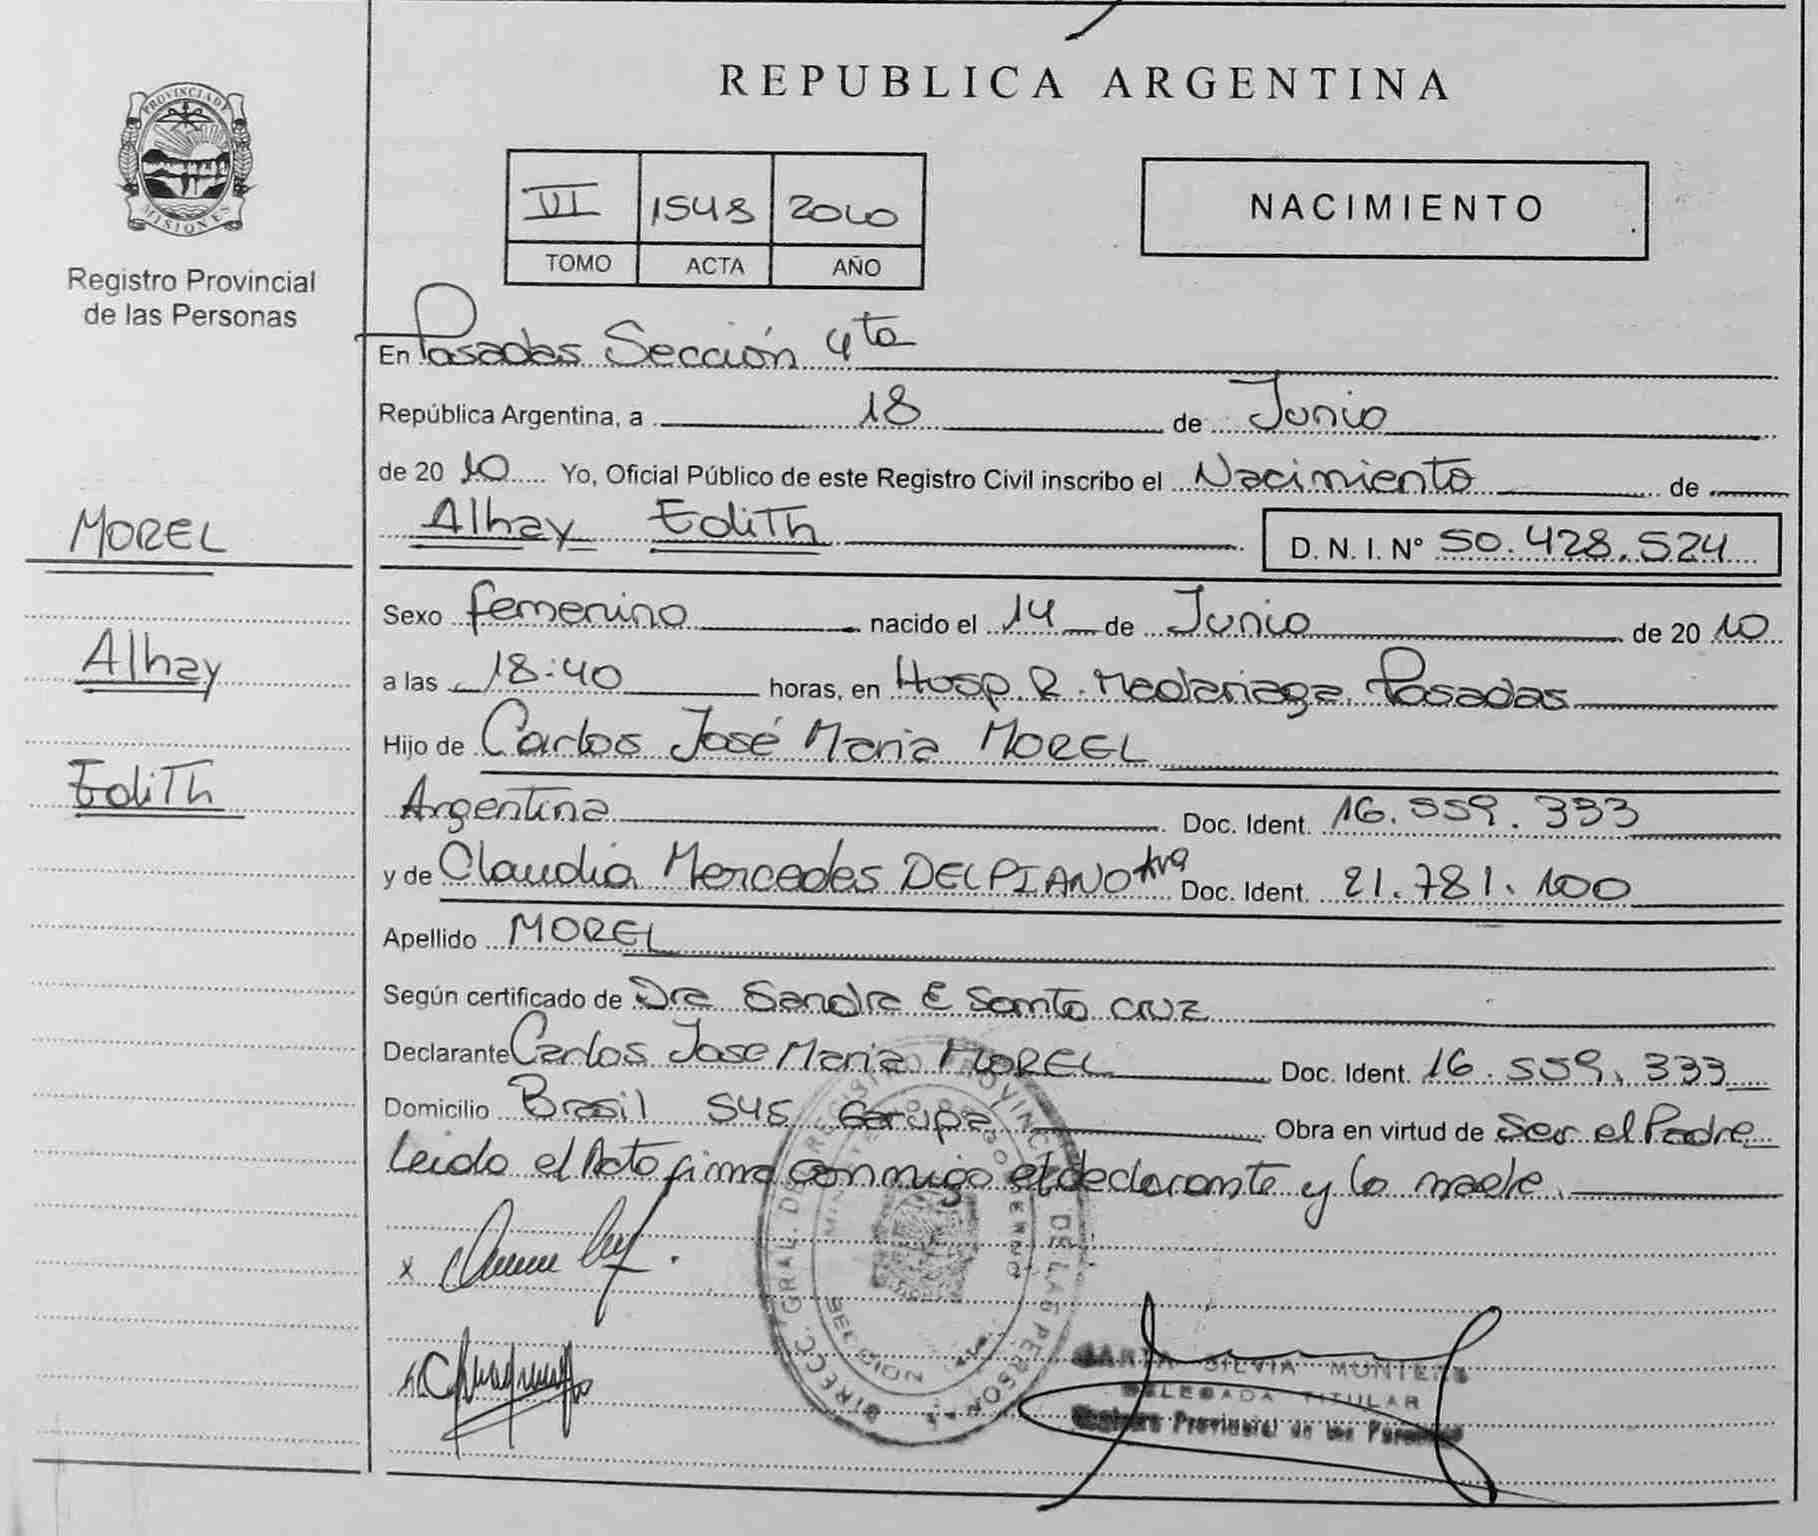 REPUBLICA ARGENTINA
PROVINCIA DE
MISIONES
Registro Provincial
de las Personas
VI 1548 2010
TOMO ACTA AÑO
NACIMIENTO
En Posadas Sección 4ta
República Argentina, a 18 de Junio
de 2010 Yo, Oficial Público de este Registro Civil inscribo el Nacimiento de
MOREL
Alhay Edith D. N. I. Nº 50.428.524
Sexo femenino nacido el 14 de Junio de 2010
Alhay
a las 18:40 horas, en Hosp R. Madariaga Posadas
Hijo de Carlos José Maria MOREL
Edith
Argentina Doc. Ident. 16.559.333
y de Claudia Mercedes DELPIANO Arg Doc. Ident. 21.781.100
Apellido MOREL
Según certificado de Dra Sandra E Santo Cruz
Declarante Carlos Jose Maria MOREL Doc. Ident. 16.559.333
Domicilio Brasil 545 Garupa Obra en virtud de Ser el Padre
leido el Acto firma conmigo el declarante y la madre
x
DIRECC. GRAL. DEL REGISTRO PROVINCIAL DE LAS PERSONAS
SILVIA
DELEGADA TITULAR
Registro Provincial de las Personas